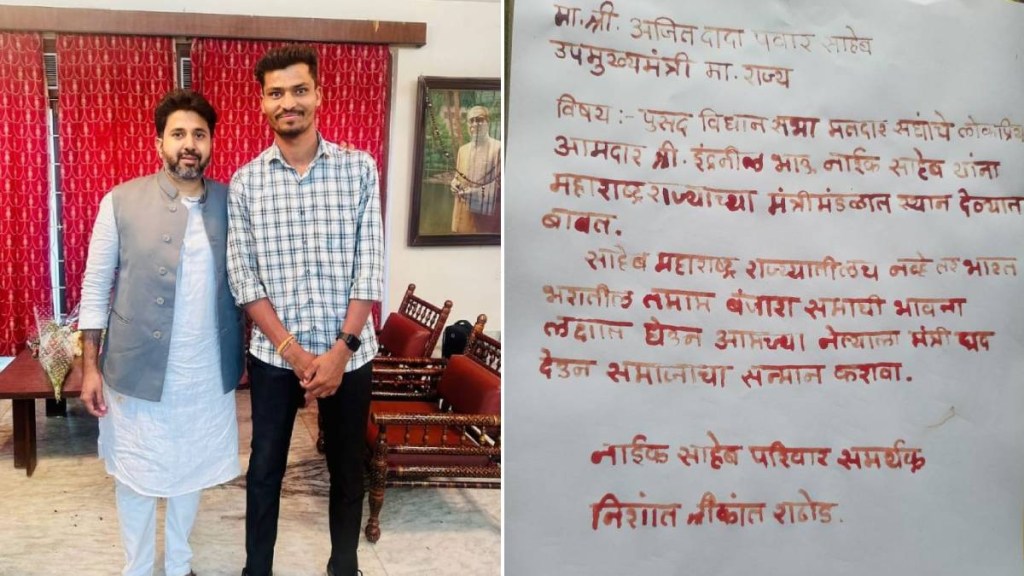 मा.श्री. अजित दादा पवार साहेब
उपमुख्यमंत्री मा. राज्य
विषय :- पुसद विधान सभा मतदार संघाचे लोकप्रिय
आमदार श्री. इंद्रनील भाऊ नाईक साहेब यांना
महाराष्ट्र राज्याच्या मंत्रीमंडळात स्थान देण्यात
बाबत.
साहेब महाराष्ट्र राज्यातीलच नव्हे तर भारत
भरातील तमाम बंजारा समाची भावना
लक्षात घेउन आमच्या नेत्याला मंत्री पद
देउन समाजाचा सन्मान करावा.
नाईक साहेब परिवार समर्थक
निशांत श्रीकांत राठोड.